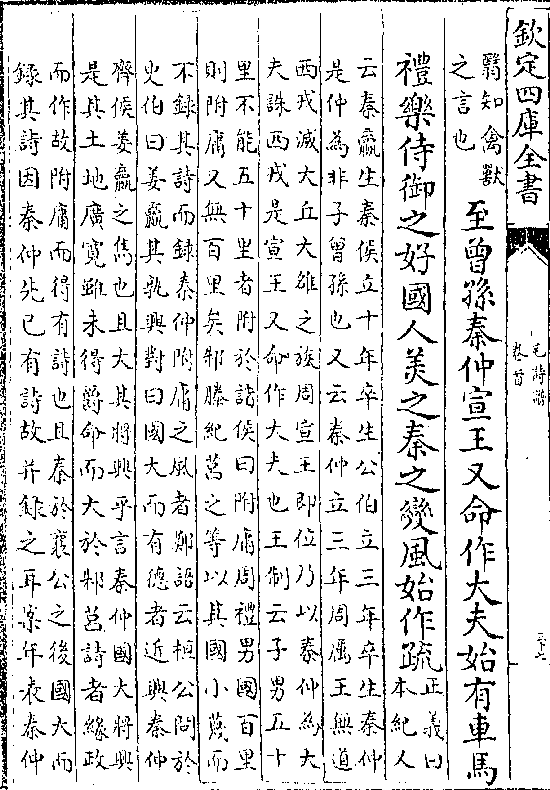 欽定四庫全書
毛詩譜
卷首
三十七
翳知禽獸
之言也
至曾孫秦仲宣王又命作大夫始有車馬
禮樂侍御之好國人美之秦之變風始作疏
正義曰
本紀人
云秦嬴生秦侯立十年卒生公伯立三年卒生秦仲
是仲為非子曾孫也又云秦仲立三年周厲王無道
西戎滅大丘大雒之族周宣王即位乃以秦仲為大
夫誅西戎是宣王又命作大夫也王制云子男五十
里不能五十里者附於諸侯曰附庸周禮男國百里
則附庸又無百里矣邾滕紀莒之等以其國小蔑而
不錄其詩而錄秦仲附庸之風者鄭語云桓公問於
史伯曰姜嬴其孰興對曰國大而有德者近興秦仲
齊侯姜嬴之雋也且大其將興乎言秦仲國大將興
是其土地廣寬雖未得爵命而大於邾莒詩者緣政
而作故附庸而得有詩也且秦於襄公之後國大而
錄其詩因秦仲先已有詩故并錄之耳案年表秦仲